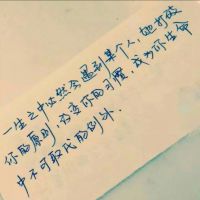 一生之中必然会遇到某个人，她打破
你的原则，改变你的习惯，成为你生命
中不可取代的例外.